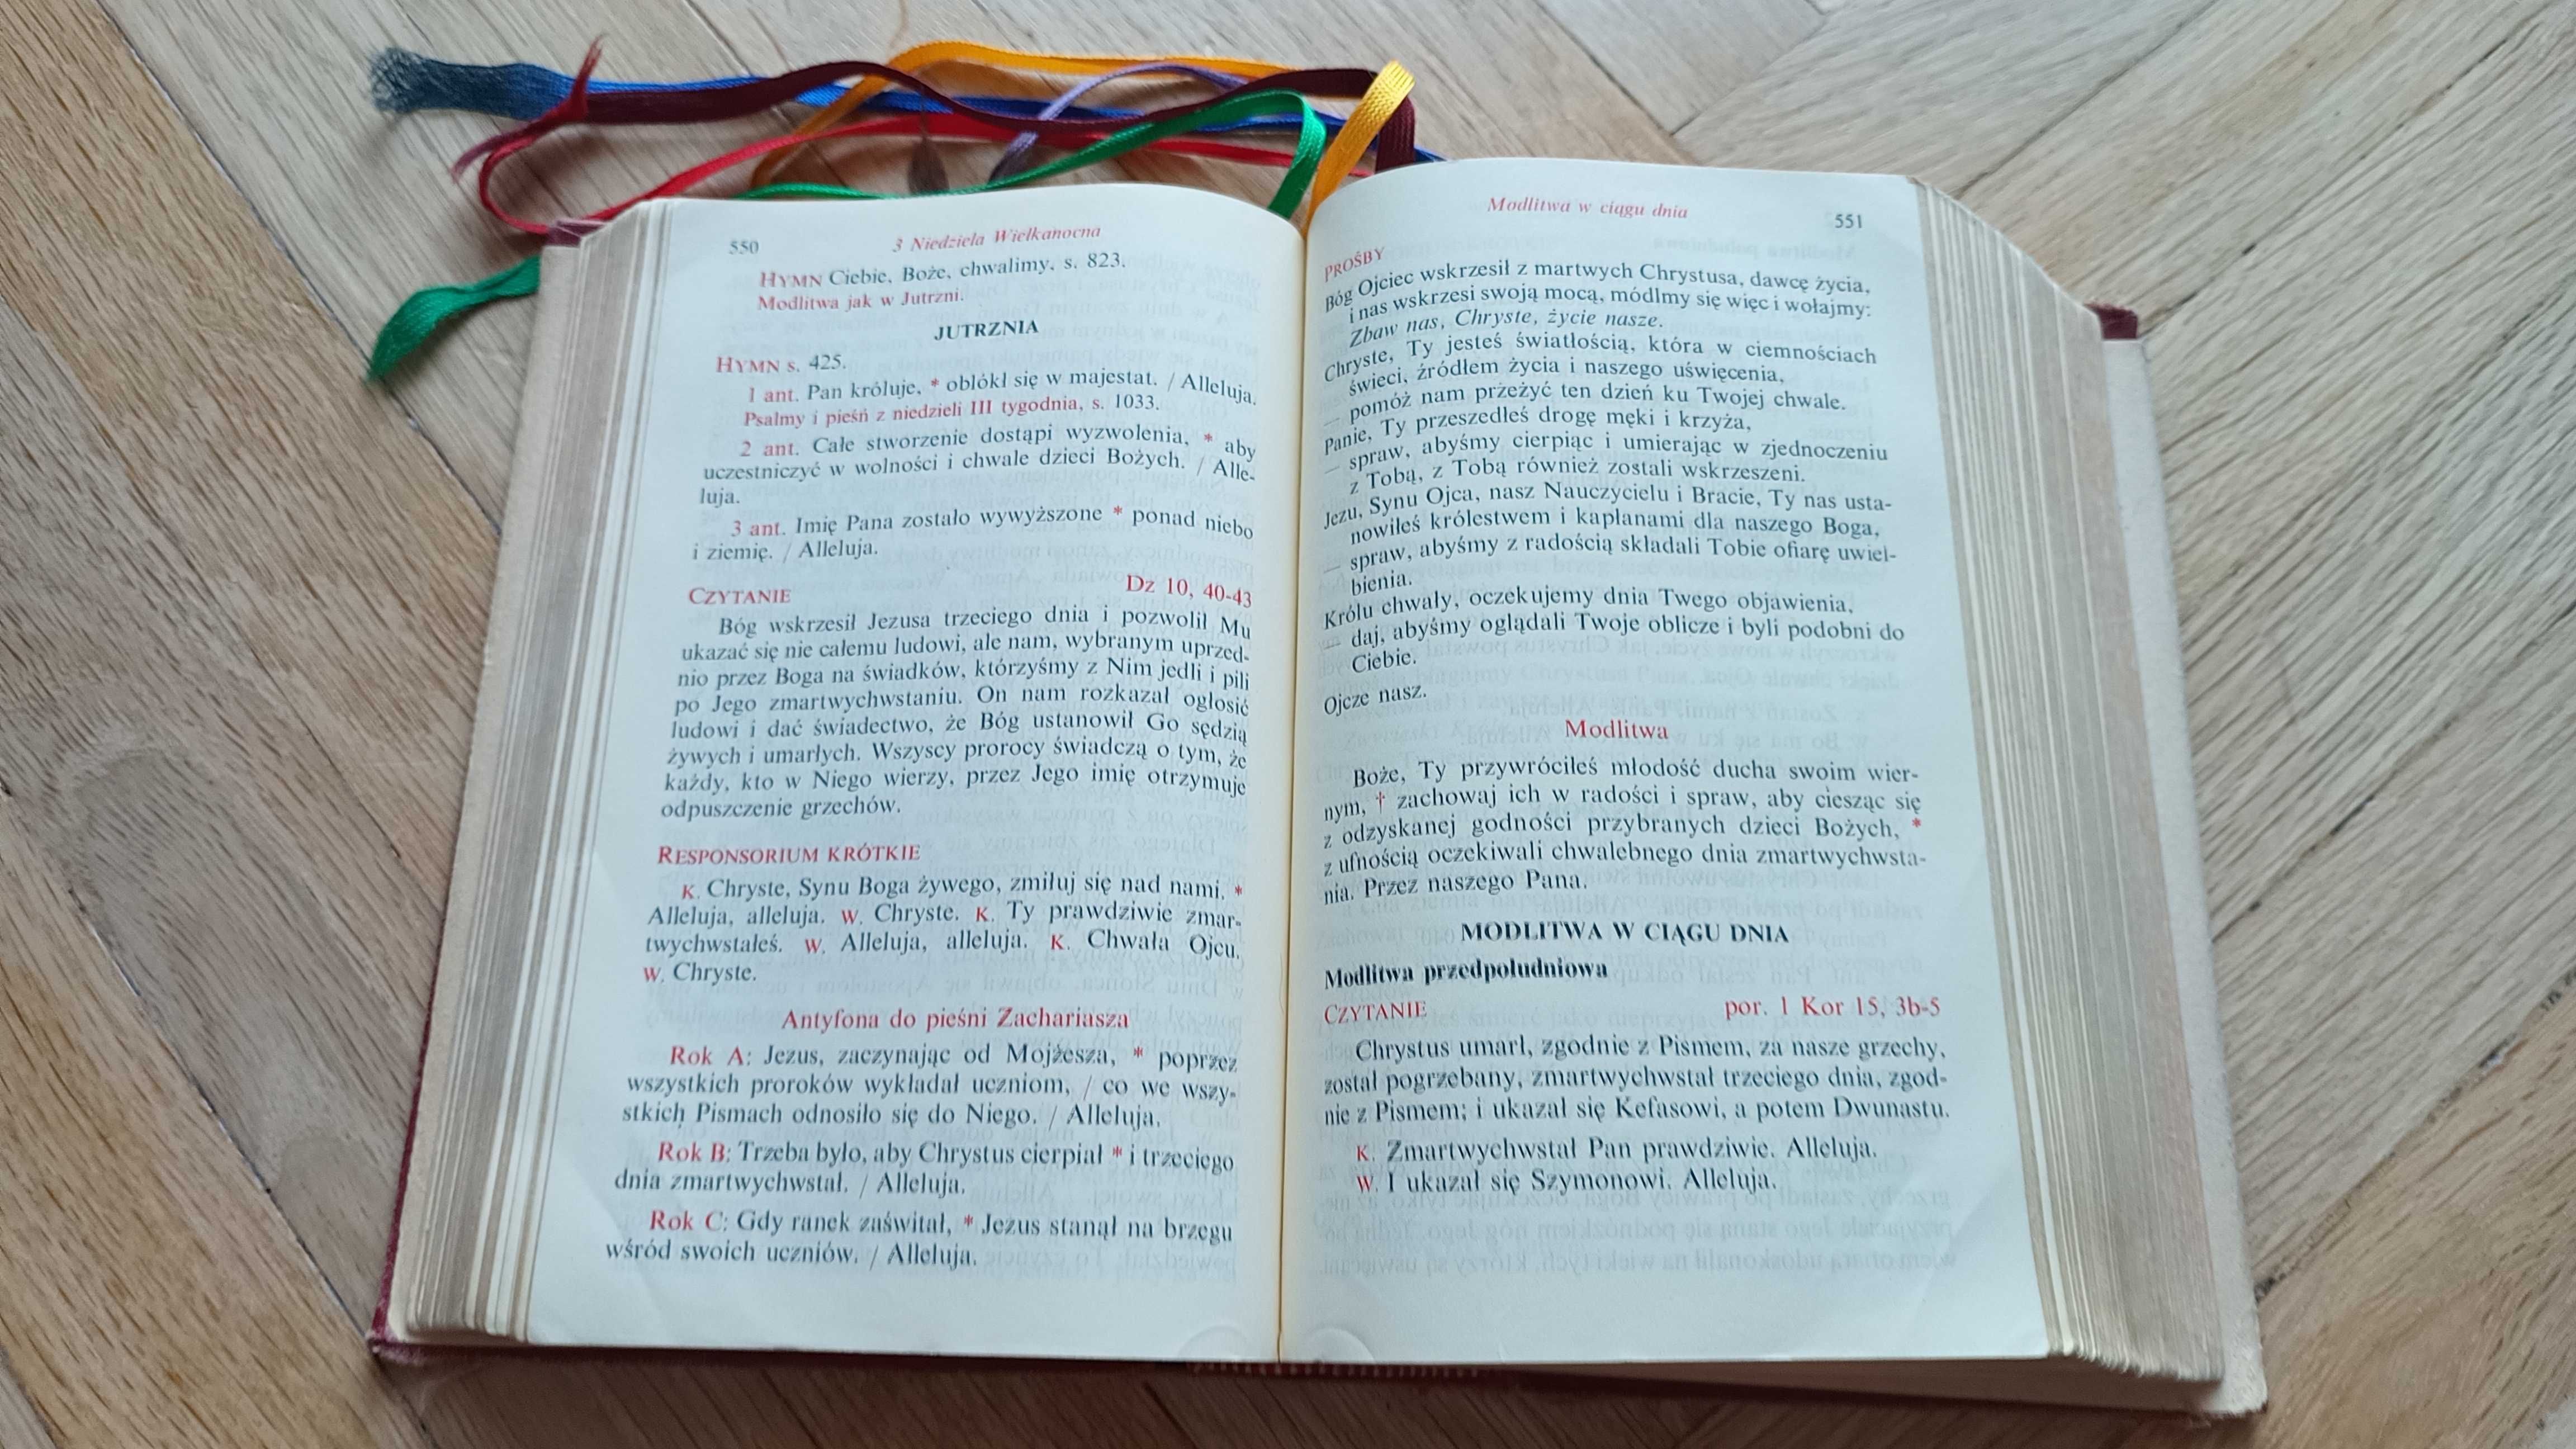 550
3 Niedziela Wielkanocna
HYMN Ciebie, Boże, chwalimy, s. 823.
Modlitwa jak w Jutrzni.
JUTRZNIA
HYMN s. 425.
1 ant. Pan króluje, * oblókł się w majestat. / Alleluja.
Psalmy i pieśń z niedzieli III tygodnia, s. 1033.
2 ant. Całe stworzenie dostąpi wyzwolenia, * aby
uczestniczyć w wolności i chwale dzieci Bożych. / Alle-
luja.
3 ant. Imię Pana zostało wywyższone * ponad niebo
i ziemię. / Alleluja.
CZYTANIE Dz 10, 40-43
Bóg wskrzesił Jezusa trzeciego dnia i pozwolił Mu
ukazać się nie całemu ludowi, ale nam, wybranym uprzed-
nio przez Boga na świadków, którzyśmy z Nim jedli i pili
po Jego zmartwychwstaniu. On nam rozkazał ogłosić
ludowi i dać świadectwo, że Bóg ustanowił Go sędzią
żywych i umarłych. Wszyscy prorocy świadczą o tym, że
każdy, kto w Niego wierzy, przez Jego imię otrzymuje
odpuszczenie grzechów.
RESPONSORIUM KRÓTKIE
K. Chryste, Synu Boga żywego, zmiłuj się nad nami. *
Alleluja, alleluja. W. Chryste. K. Ty prawdziwie zmar-
twychwstałeś. W. Alleluja, alleluja. K. Chwała Ojcu.
W. Chryste.
Antyfona do pieśni Zachariasza
Rok A: Jezus, zaczynając od Mojżesza, * poprzez
wszystkich proroków wykładał uczniom, / co we wszy-
stkich Pismach odnosiło się do Niego. / Alleluja.
Rok B: Trzeba było, aby Chrystus cierpiał * i trzeciego
dnia zmartwychwstał. / Alleluja.
Rok C: Gdy ranek zaświtał, * Jezus stanął na brzegu
wśród swoich uczniów. / Alleluja.
Modlitwa w ciągu dnia
551
PROŚBY
Bóg Ojciec wskrzesił z martwych Chrystusa, dawcę życia,
i nas wskrzesi swoją mocą, módlmy się więc i wołajmy:
Zbaw nas, Chryste, życie nasze.
Chryste, Ty jesteś światłością, która w ciemnościach
świeci, źródłem życia i naszego uświęcenia,
— pomóż nam przeżyć ten dzień ku Twojej chwale.
Panie, Ty przeszedłeś drogę męki i krzyża,
— spraw, abyśmy cierpiąc i umierając w zjednoczeniu
z Tobą, z Tobą również zostali wskrzeszeni.
Jezu, Synu Ojca, nasz Nauczycielu i Bracie, Ty nas usta-
nowiłeś królestwem i kapłanami dla naszego Boga,
— spraw, abyśmy z radością składali Tobie ofiarę uwiel-
bienia.
Królu chwały, oczekujemy dnia Twego objawienia,
— daj, abyśmy oglądali Twoje oblicze i byli podobni do
Ciebie.
Ojcze nasz.
Modlitwa
Boże, Ty przywróciłeś młodość ducha swoim wier-
nym, † zachowaj ich w radości i spraw, aby ciesząc się
z odzyskanej godności przybranych dzieci Bożych, *
z ufnością oczekiwali chwalebnego dnia zmartwychwsta-
nia. Przez naszego Pana.
MODLITWA W CIĄGU DNIA
Modlitwa przedpołudniowa
CZYTANIE por. 1 Kor 15, 3b-5
Chrystus umarł, zgodnie z Pismem, za nasze grzechy,
został pogrzebany, zmartwychwstał trzeciego dnia, zgod-
nie z Pismem; i ukazał się Kefasowi, a potem Dwunastu.
K. Zmartwychwstał Pan prawdziwie. Alleluja.
W. I ukazał się Szymonowi. Alleluja.